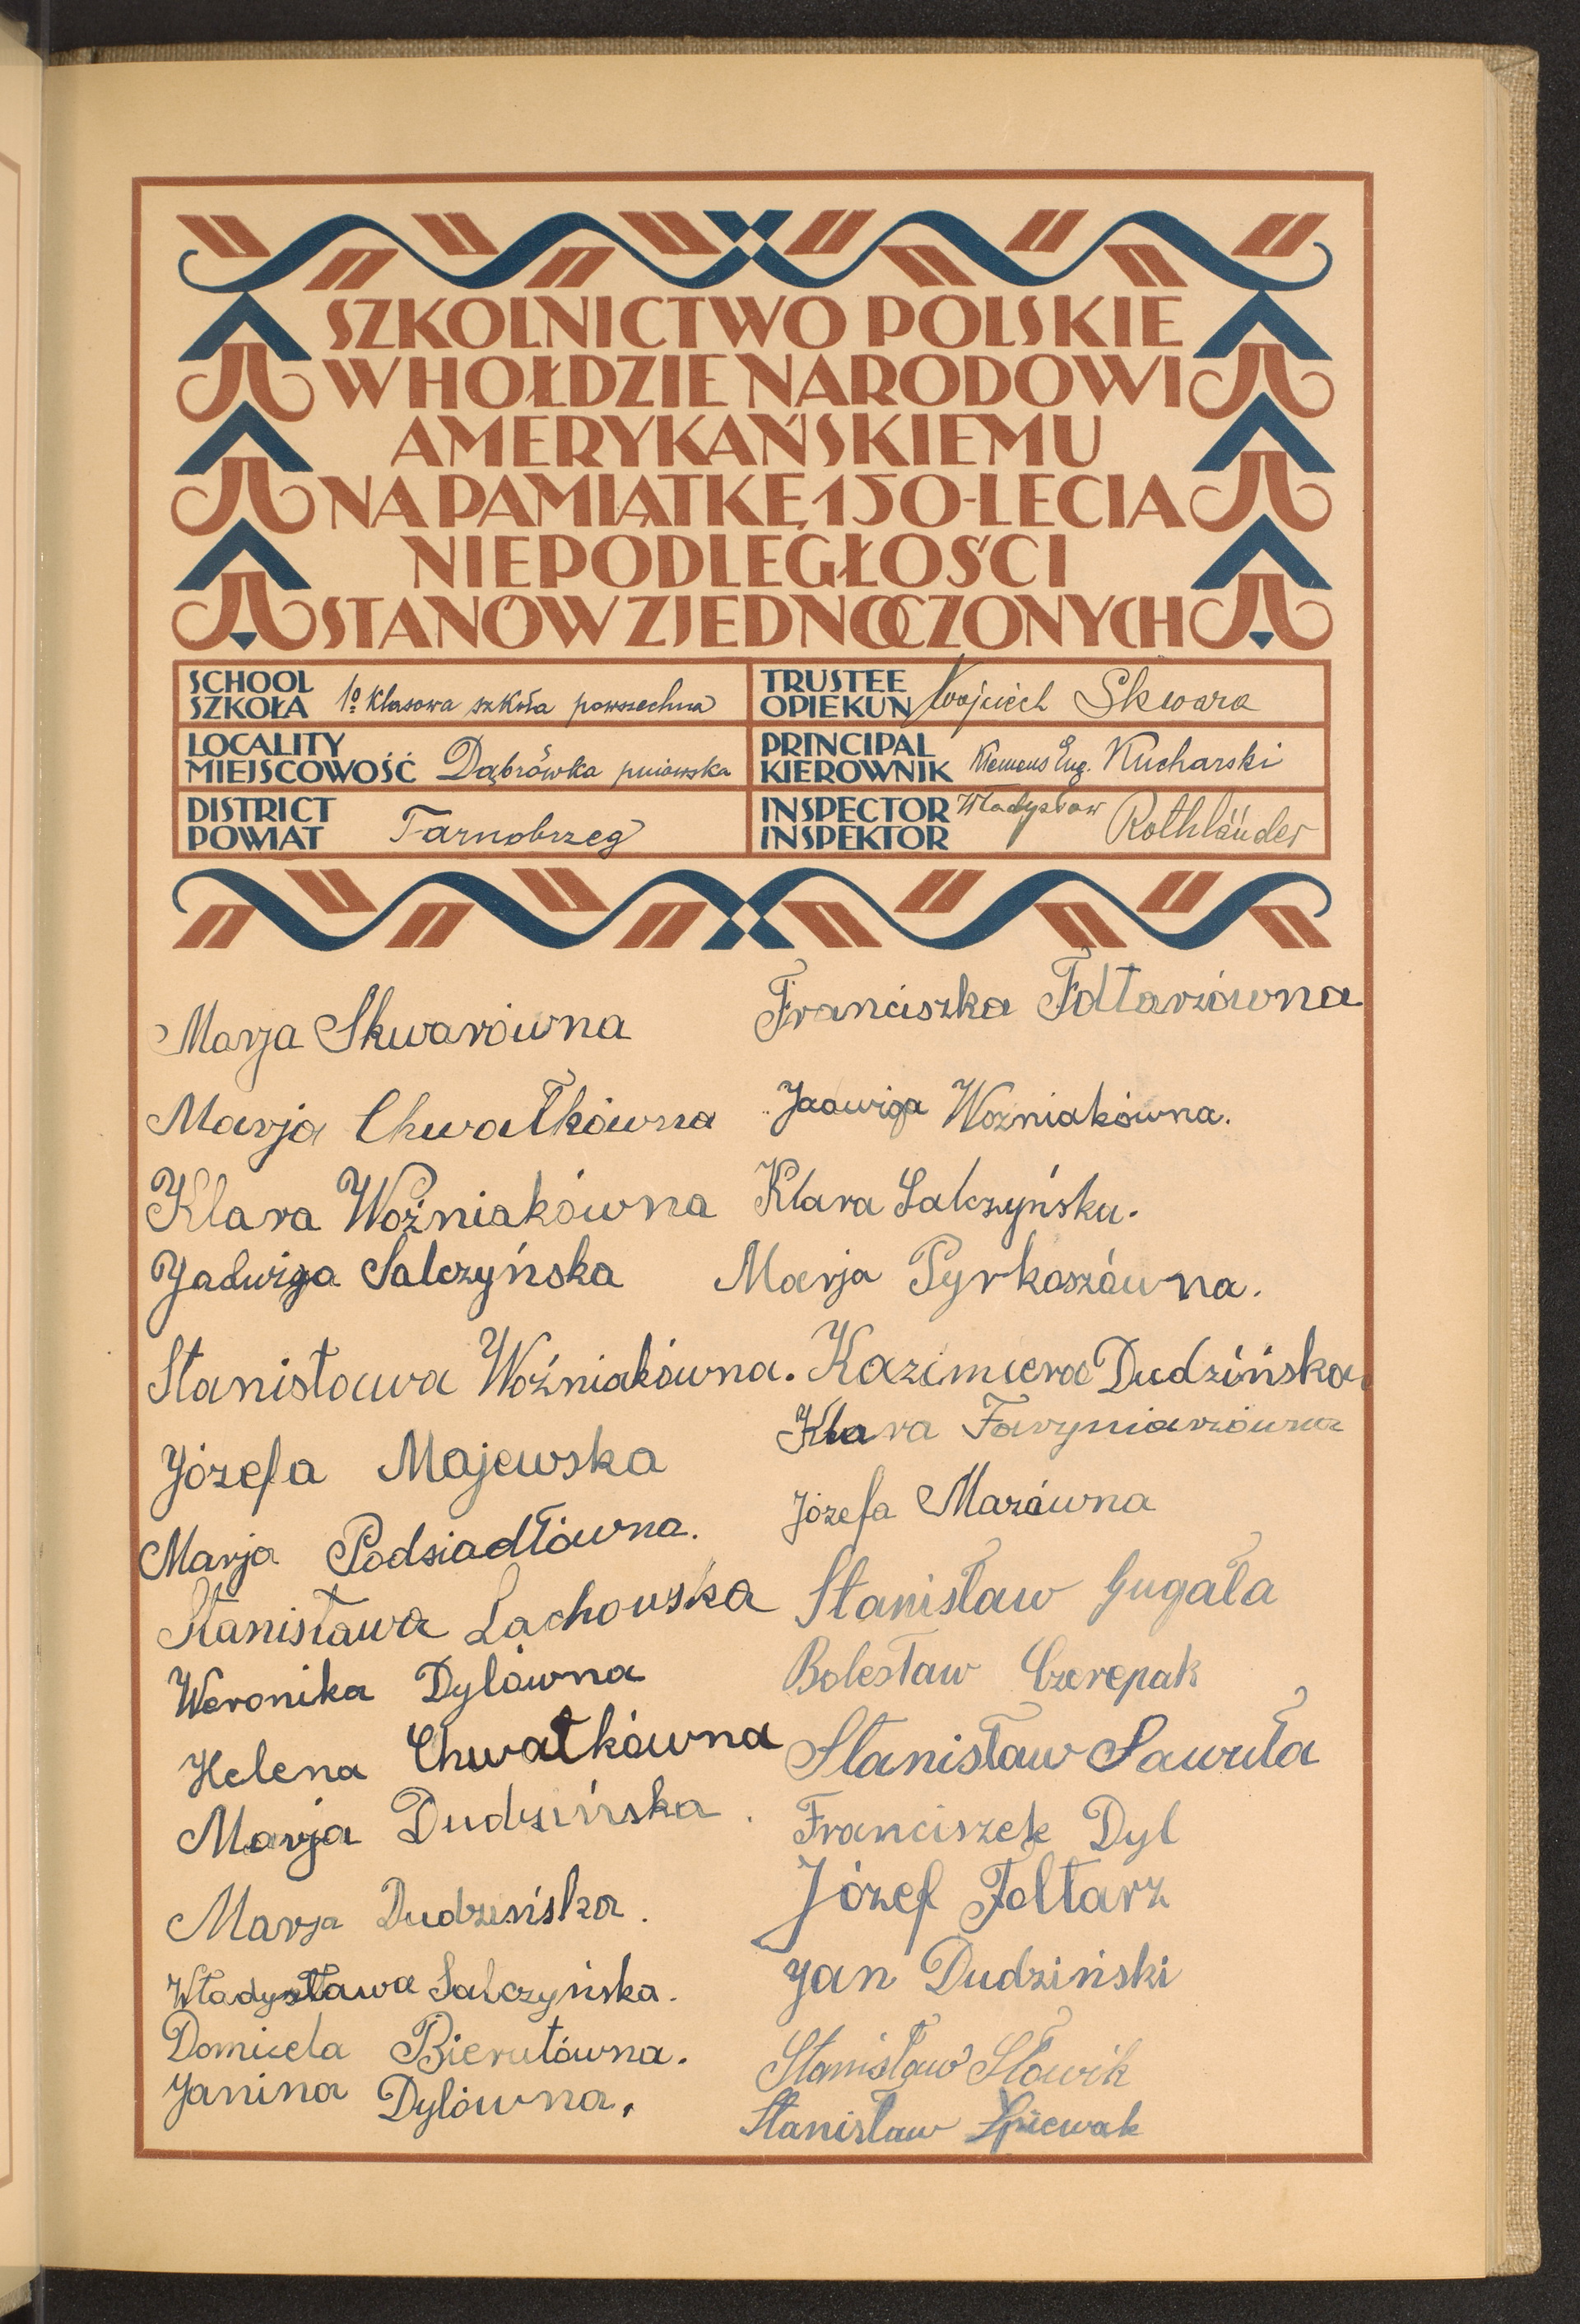 SZKOLNICTWO POLSKIE
W HOŁDZIE NARODOWI
AMERYKAŃSKIEMU
NA PAMIĄTKĘ 150-LECIA
NIEPODLEGŁOŚCI
STANÓW ZJEDNOCZONYCH
SCHOOL
SZKOŁA 1º klasowa szkoła powszechna
TRUSTEE
OPIEKUN Wojciech Skwara
LOCALITY
MIEJSCOWOŚĆ Dąbrówka pniowska
PRINCIPAL
KIEROWNIK Klemens Eug. Kucharski
DISTRICT
POWIAT Tarnobrzeg
INSPECTOR
INSPEKTOR Władysław Rothländer
Marja Skwarówna
Marja Chwałkówna
Klara Woźniakówna
Jadwiga Salczyńska
Stanisława Woźniakówna.
Józefa Majewska
Marja Podsiadłówna.
Stanisława Lachowska
Weronika Dylówna
Helena Chwałkówna
Marja Dudzińska.
Marja Dudzińska.
Władysława Salczyńska.
Domicela Bierutówna.
Janina Dylówna.
Franciszka Fołtarzówna
Jadwiga Woźniakówna.
Klara Salczyńska.
Marja Pyrkoszówna.
Kazimiera Dudzińska.
Klara Faryniarzówna
Józefa Mazówna
Stanisław Gugała
Bolesław Czerepak
Stanisław Sawuła
Franciszek Dyl
Józef Fołtarz
Jan Dudziński
Stanisław Słowik
Stanisław Śpiewak